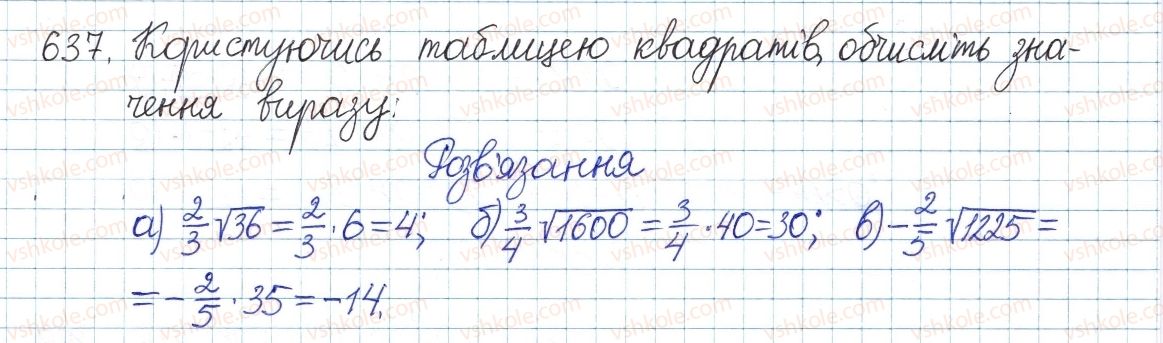 637. Користуючись таблицею квадратів, обчисліть зна-
чення виразу:
Розв'язання
а) 2/3 √36 = 2/3 · 6 = 4; б) 3/4 √1600 = 3/4 · 40 = 30; в) -2/5 √1225 =
= -2/5 · 35 = -14.